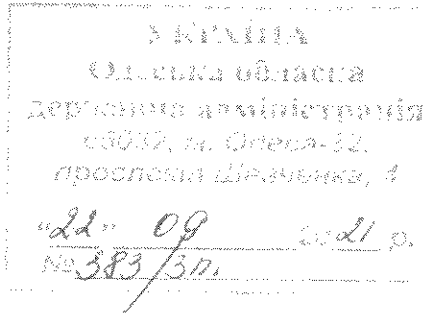 УКРАЇНА
Одеська обласна
державна адміністрація
65032, м. Одеса-32,
проспект Шевченка, 4
"22" 09 2021 р.
№ 383/зп.